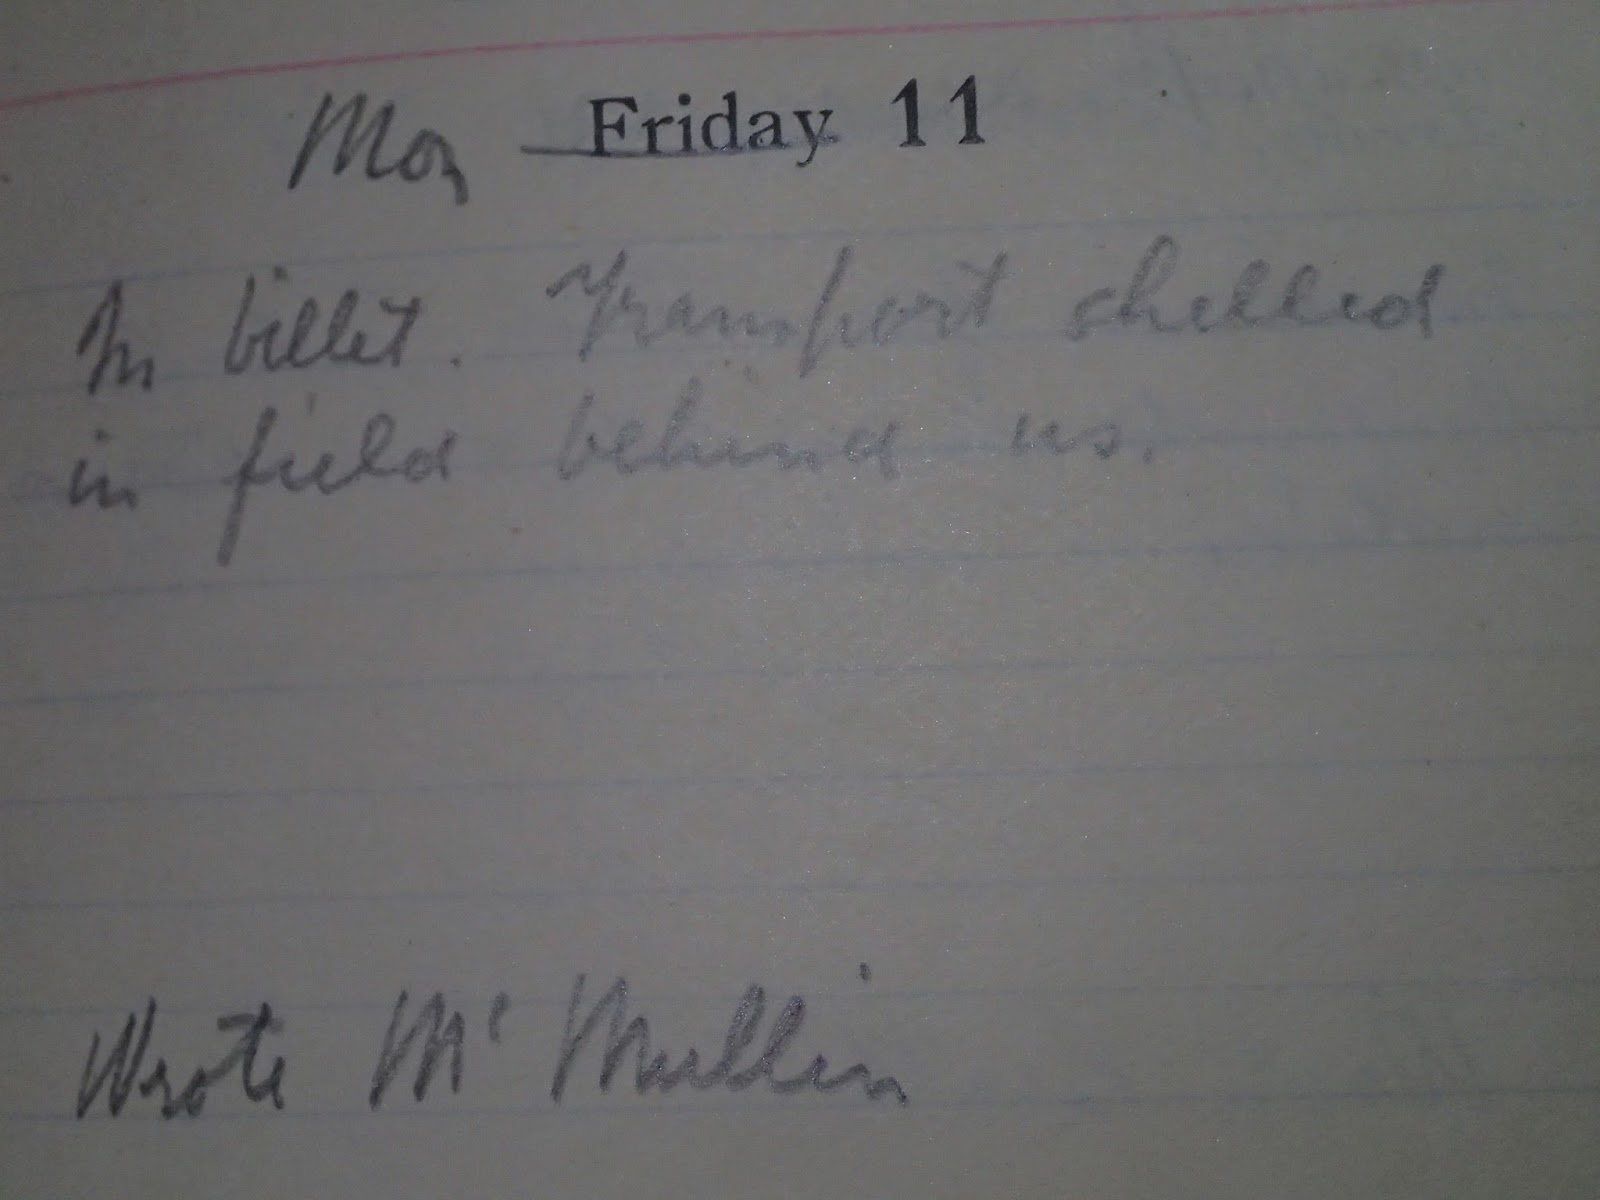 Mon Friday 11
In billet. Transport shelled
in field behind us.
Wrote Mc Mullin